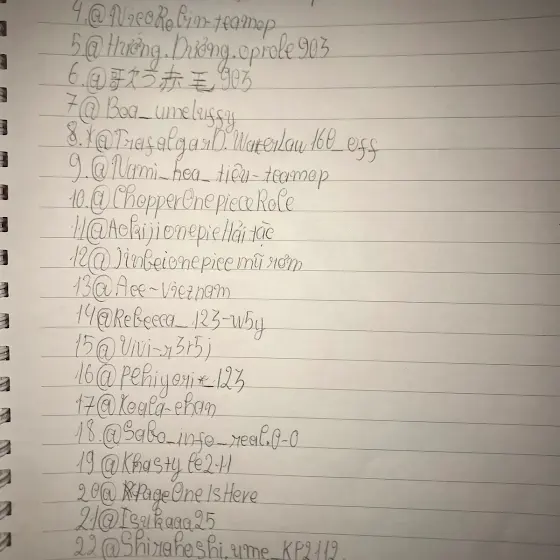 4.@NicoRobin-teamop
5@Hướng.Dương.oprole903
6.@歌う赤毛903
7@Boa_umelussy
8.*@TrafalgarD.Waterlaw160_eff
9.@Nami_hoa_tiêu-teamop
10.@ChopperOnepieceRole
11@AokijionepieHải tặc
12@Jinbeionepicemũ rơm
13@Ace-Vieznam
14@Rebecca_123-w5y
15@Vivi-r3r5j
16@pehiyori*_123
17@Koala-chan
18.@Sabo_info_real.0-0
19@Khasty
20@PageOneIsHere
21@Isukaaa25
22@Shirahoshi.ume_KP2112.